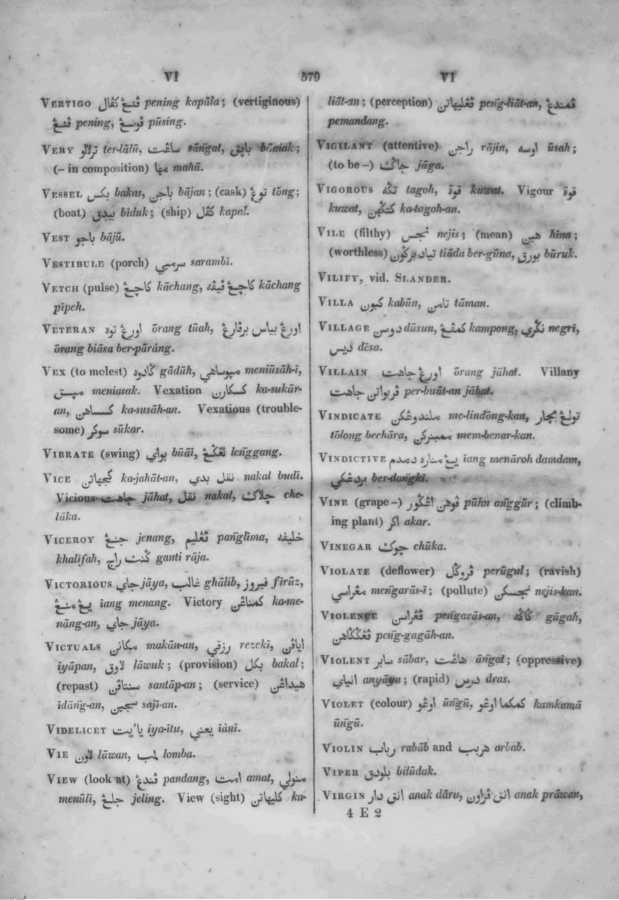 VI 579 VI
VERTIGO ڤنيڠ كڤال pening kapāla; (vertiginous)
ڤنيڠ pening, ڤوسيڠ pūsing.
VERY ترلالو ter-lālū, ساڠت sāngat, باڽق bāniak;
(– in composition) مها mahā.
VESSEL بكس bakas, باجن bājan; (cask) توڠ tōng;
(boat) بيدق biduk; (ship) كاڤل kapal.
VEST باجو bājū.
VESTIBULE (porch) سرمبي sarambi.
VETCH (pulse) كاچڠ kāchang, كاچڠ ڤيڤه kāchang
pīpeh.
VETERAN اورڠ توه ōrang tūah, اورڠ بياس برڤارڠ
ōrang biāsa ber-pārang.
VEX (to molest) گادوه gādūh, meniūsāh-ī,
meniasak. Vexation ka-sukār-
an, ka-susāh-an. Vexatious (trouble-
some) سوكر sūkar.
VIBRATE (swing) بواي būāī, لڠڬڠ lenggang.
VICE كجهاتن ka-jahāt-an, نقل بدي nakal budī.
Vicious جاهت jāhat, نقل nakal, چلاك che-
lāka.
VICEROY جنڠ jenang, ڤڠليم panglīma, خليفه
khalīfah, گنت راج ganti rāja.
VICTORIOUS جاي jāya, غالب ghālib, فيروز fīrūz,
يڠ منڠ iang menang. Victory كمناڠن ka-me-
nāng-an, جاي jāya.
VICTUALS مكانن makān-an, رزقي rezekī, اياڤن
īyāpan, لاوق lāwuk; (provision) بكل bakal;
(repast) سنتاڤن santāp-an; (service) هيداڠن
īdāng-an, سجين saji-an.
VIDELICET يا ايت iya-ītu, يعني iāni.
VIE لاون lāwan, لمب lomba.
VIEW (look at) ڤندڠ pandang, امت amat, منولي
menūli, جلڠ jeling. View (sight) كليهاتن ka-
liāt-an; (perception) ڤڠليهاتن peng-liāt-an, ڤمندڠ
pemandang.
VIGILANT (attentive) راجن rājin, اوسه ūsah;
(to be –) جاگ jāga.
VIGOROUS تگه tagoh, قوة kuwat. Vigour قوة
kuwat, كتگوهن ka-tagoh-an.
VILE (filthy) نجس nejis; (mean) هين hina;
(worthless) تياد برگون tiāda ber-gūna, بورق būruk.
VILIFY, vid. SLANDER.
VILLA كبون kabūn, تامن tāman.
VILLAGE دوسن dūsun, كمڤڠ kampong, نگري negri,
ديس dēsa.
VILLAIN اورڠ جاهت ōrang jāhat. Villany
ڤربواتن جاهت per-buāt-an jāhat.
VINDICATE ملندوڠكن me-lindōng-kan, تولڠ بچار
tōlong bechāra, ممبنركن mem-benar-kan.
VINDICTIVE يڠ مناره دمدم iang menāroh damdam,
بردڠكي ber-dangki.
VINE (grape –) ڤوهن اڠگور pūhn anggūr; (climb-
ing plant) اكر akar.
VINEGAR چوك chūka.
VIOLATE (deflower) ڤروگل perūgul; (ravish)
مڠراسي mengarās-ī; (pollute) نجسكن nejis-kan.
VIOLENCE ڤڠراسن pengarās-an, گاگه gāgah,
ڤڠگاگاهن peng-gagāh-an.
VIOLENT سابر sābar, هاڠت āngat; (oppressive)
انياي anyāya; (rapid) درس dras.
VIOLET (colour) اوڠو ūngū, كمكما اوڠو kamkamā
ūngū.
VIOLIN رباب rabāb and هربب arbab.
VIPER بلودق bilūdak.
VIRGIN انق دار anak dāru, انق ڤراون anak prāwan,
4 E 2